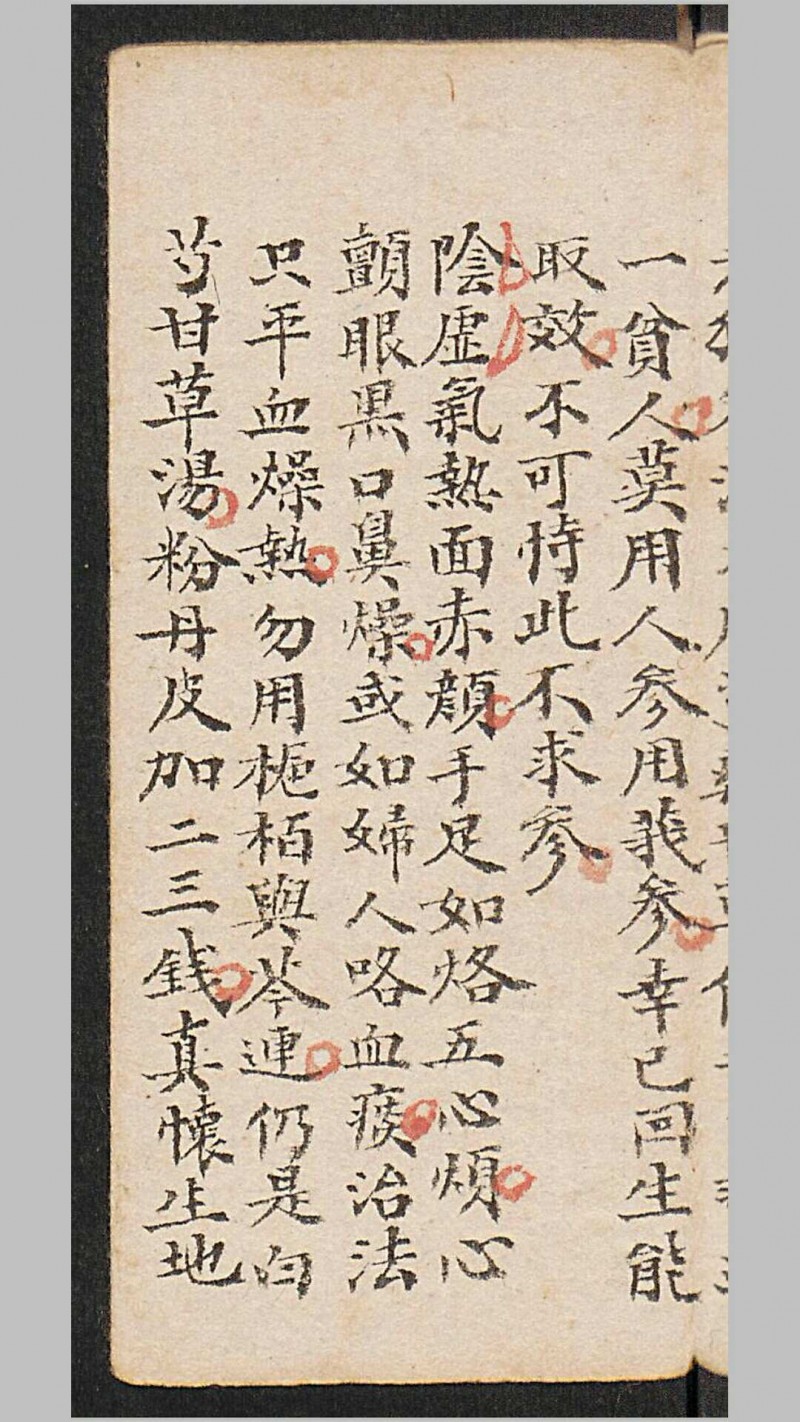 一貧人莫用人参用莪参幸已回生能
取效不可恃此不求参
陰虛氣熱面赤顏手足如烙五心煩心
顫眼黒口鼻燥或如婦人咯血痰治法
只平血燥熱勿用梔栢與芩連仍是白
芍甘草湯粉丹皮加二三錢真懷生地